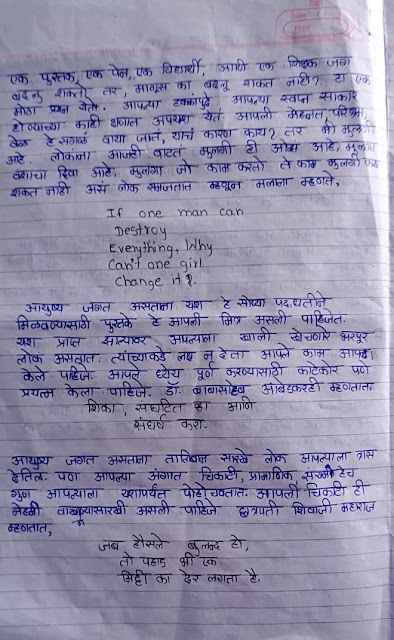 एक पुस्तक, एक पेन, एक विद्यार्थी, आणि एक शिक्षक जग
बदलू शकतो तर, माणूस का बदलू शकत नाही? हा एक
मोठा प्रश्न येतो. आपल्या डोळ्यापुढे आपल्या स्वप्न साकार
होण्याच्या काही क्षणात अपयश येत. आपली मेहनत, परिश्रम,
वेळ हे सगळं वाया जातं, याचं कारण काय? तर मी मुलगी
आहे. लोकांना आजही वाटतं मुलगी ही ओझ आहे, मुलगा
वंशाचा दिवा आहे. मुलगा जो काम करतो ते काम मुलगी करू
शकत नाही असं लोक समजतात म्हणून मलाला म्हणते,
If one man can
Destroy
Everything, Why
Can't one girl
Change it?
आयुष्य जगत असताना यश हे सोप्या पद्धतीने
मिळवण्यासाठी पुस्तके हे आपली मित्र असली पाहिजेत.
यश प्राप्त झाल्यावर आपल्याला खाली खेचणारे भरपूर
लोक असतात. त्यांच्याकडे लक्ष न देता आपले काम आपण
केले पहिजे. आपले ध्येय पूर्ण करण्यासाठी काटेकोर पणे
प्रयत्न केला पाहिजे. डॉ. बाबासाहेब आंबेडकरही म्हणतात.
शिका, संघटित व्हा आणि
संघर्ष करा.
आयुष्य जगत असताना तालिबान सारखे लोक आपल्याला त्रास
देतिल. पण आपल्या अंगात चिकाटी, प्रामाणिक, संयमी हेच
गुण आपल्याला यशापर्यंत पोहोचवतात. आपली चिकाटी ही
नेहमी असली पाहिजे. छत्रपती शिवाजी महाराज
म्हणतात,
जब हौसले बुलन्द हो,
तो पहाड भी एक
मिट्टी का ढेर लगता है.